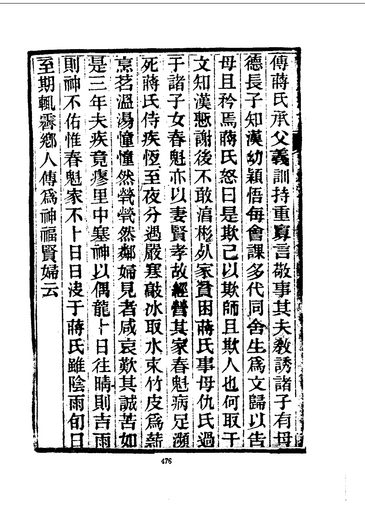 傳蔣氏承父義訓持重寡言敬事其夫敎誘諸子有母
德長子知漢幼穎悟每會課多代同舍生爲文歸以告
母且矜焉蔣氏怒曰是欺己以欺師且欺人也何取于
文知漢慙謝後不敢滄彬
家貧困蔣氏事母仇氏過
于諸子女春魁亦以妻賢孝故經營其家春魁病足瀕
死蔣氏侍疾恆至夜分遇嚴寒敲冰取水束竹皮爲薪
烹茗溫湯憧憧然煢煢然鄰婦見者咸哀歎其誠苦如
是三年夫疾竟瘳里中塞神以偶龍十日往晴則吉雨
則神不佑惟春魁家不卜日日淩于蔣氏雖陰雨旬日
至期輒霽鄉人傳爲神福賢婦云
476